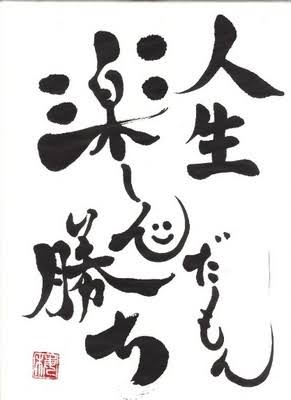 人生
楽しん
だもん
勝ち